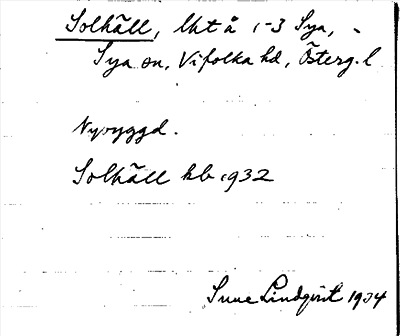 Solhäll, lht å 1-3 Sya,
Sya sn, Vifolka hd, Österg. l
Nybyggd.
Solhäll kb 1932
Sune Lindqvist 1934